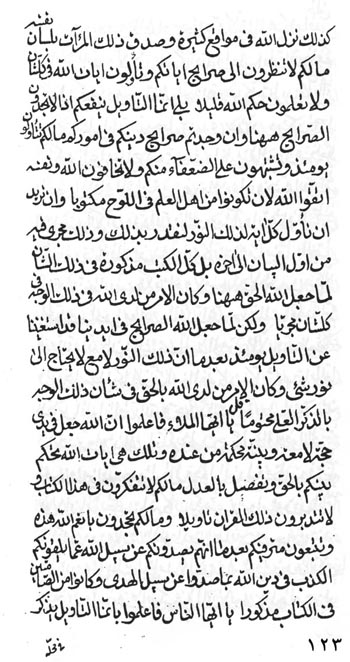 كذلك نزل الله فى مواقع كثيرة وصدق فى ذلك المرآت بلسان نفسه
مالكم لا تنظرون الى صرايح اياتكم وتأولون ايات الله فى كلشأن
ولا تعلمون حكم الله فليلا بلى انما التاويل ينفعكم اذا لا تجدون
الصرايح ههنا وان وجدتم صرايح دينكم فى اموركم مالكم تتأولون
يومئذ وتشتبهون على الضعفاء منكم ولا تخافون الله ونفسه
اتقوا الله لان تكونوا من اهل العلم فى اللوح مكتوبا وان نريد
ان نأول كل اية لذلك النور لنقدر بذلك وذلك مجرى فيه
من اول البيان الى اخره بل كل الكتب مذكورة فى ذلك الشأن
لما جعل الله الحق ههنا وكان الامر من لدى الله فى ذلك الوجه فى
كلشأن مجريا ولكن لما جعل الله الصرايح فى ايدينا قد استغنينا
عن التاويل يومئذ بعد ما ان ذلك النور لامع لا يحتاج الى
نور شئ وكان الامر من لدى الله بالحق فى شأن ذلك الوجه
بالذكر العلى محتوما قل يا ايها الملاء فاعلموا ان الله جعل فى يدى
حجة لامعة وبينة محكمة من عنده وتلك هى ايات الله تحكم
بينكم بالحق ويفصل بالعدل مالكم لا تتفكرون فى هذا الكتاب و
لا تتدبرون ذلك القران تاويلا ومالكم تجحدون بانعم الله هذه
وتتبعون مترفيكم بعد ما انهم يصدونكم عن سبيل الله بما يلقونكم
الكذب فى دين الله بما صدوا عن سبيل الهدى وكانوا من الضالين
فى الكتاب مذكورا يا ايها الناس فاعلموا بانما التاويل يذكر
١٢٣